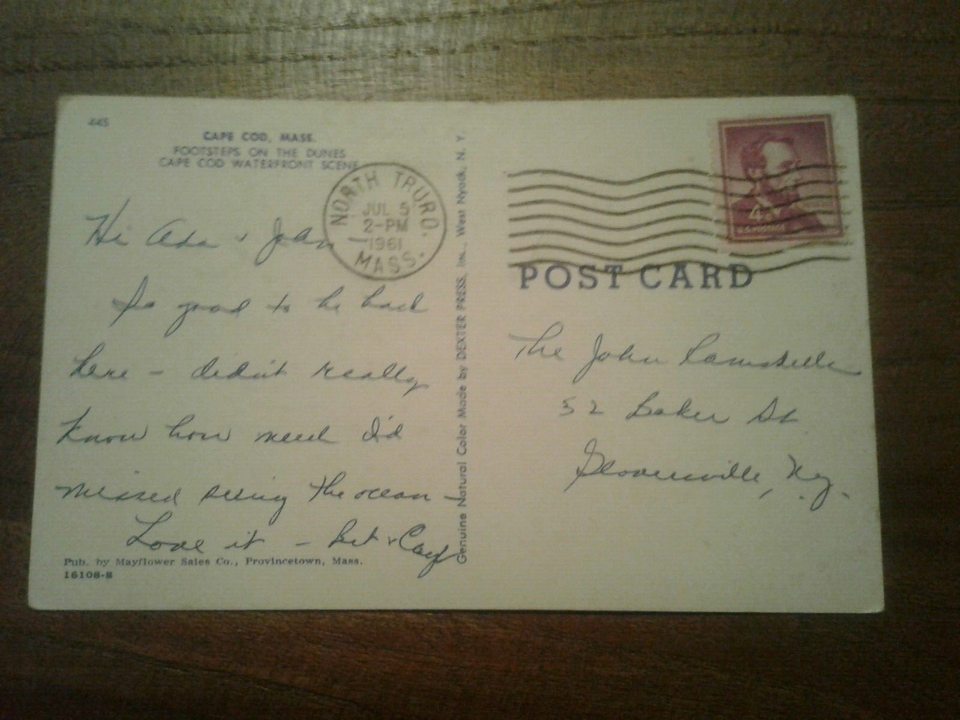 445
CAPE COD, MASS.
FOOTSTEPS ON THE DUNES
CAPE COD WATERFRONT SCENE
NORTH TRURO,
JUL 5
2-PM
1961
MASS.
Hi Ada + John —
So good to be back
here — didn't really
know how much I'd
missed seeing the ocean —
Love it —
Pub. by Mayflower Sales Co., Provincetown, Mass.
16108-B
Genuine Natural Color Made by DEXTER PRESS, Inc., West Nyack, N. Y.
4¢
U.S. POSTAGE
POST CARD
The John
52 Baker St
Gloversville, N.Y.